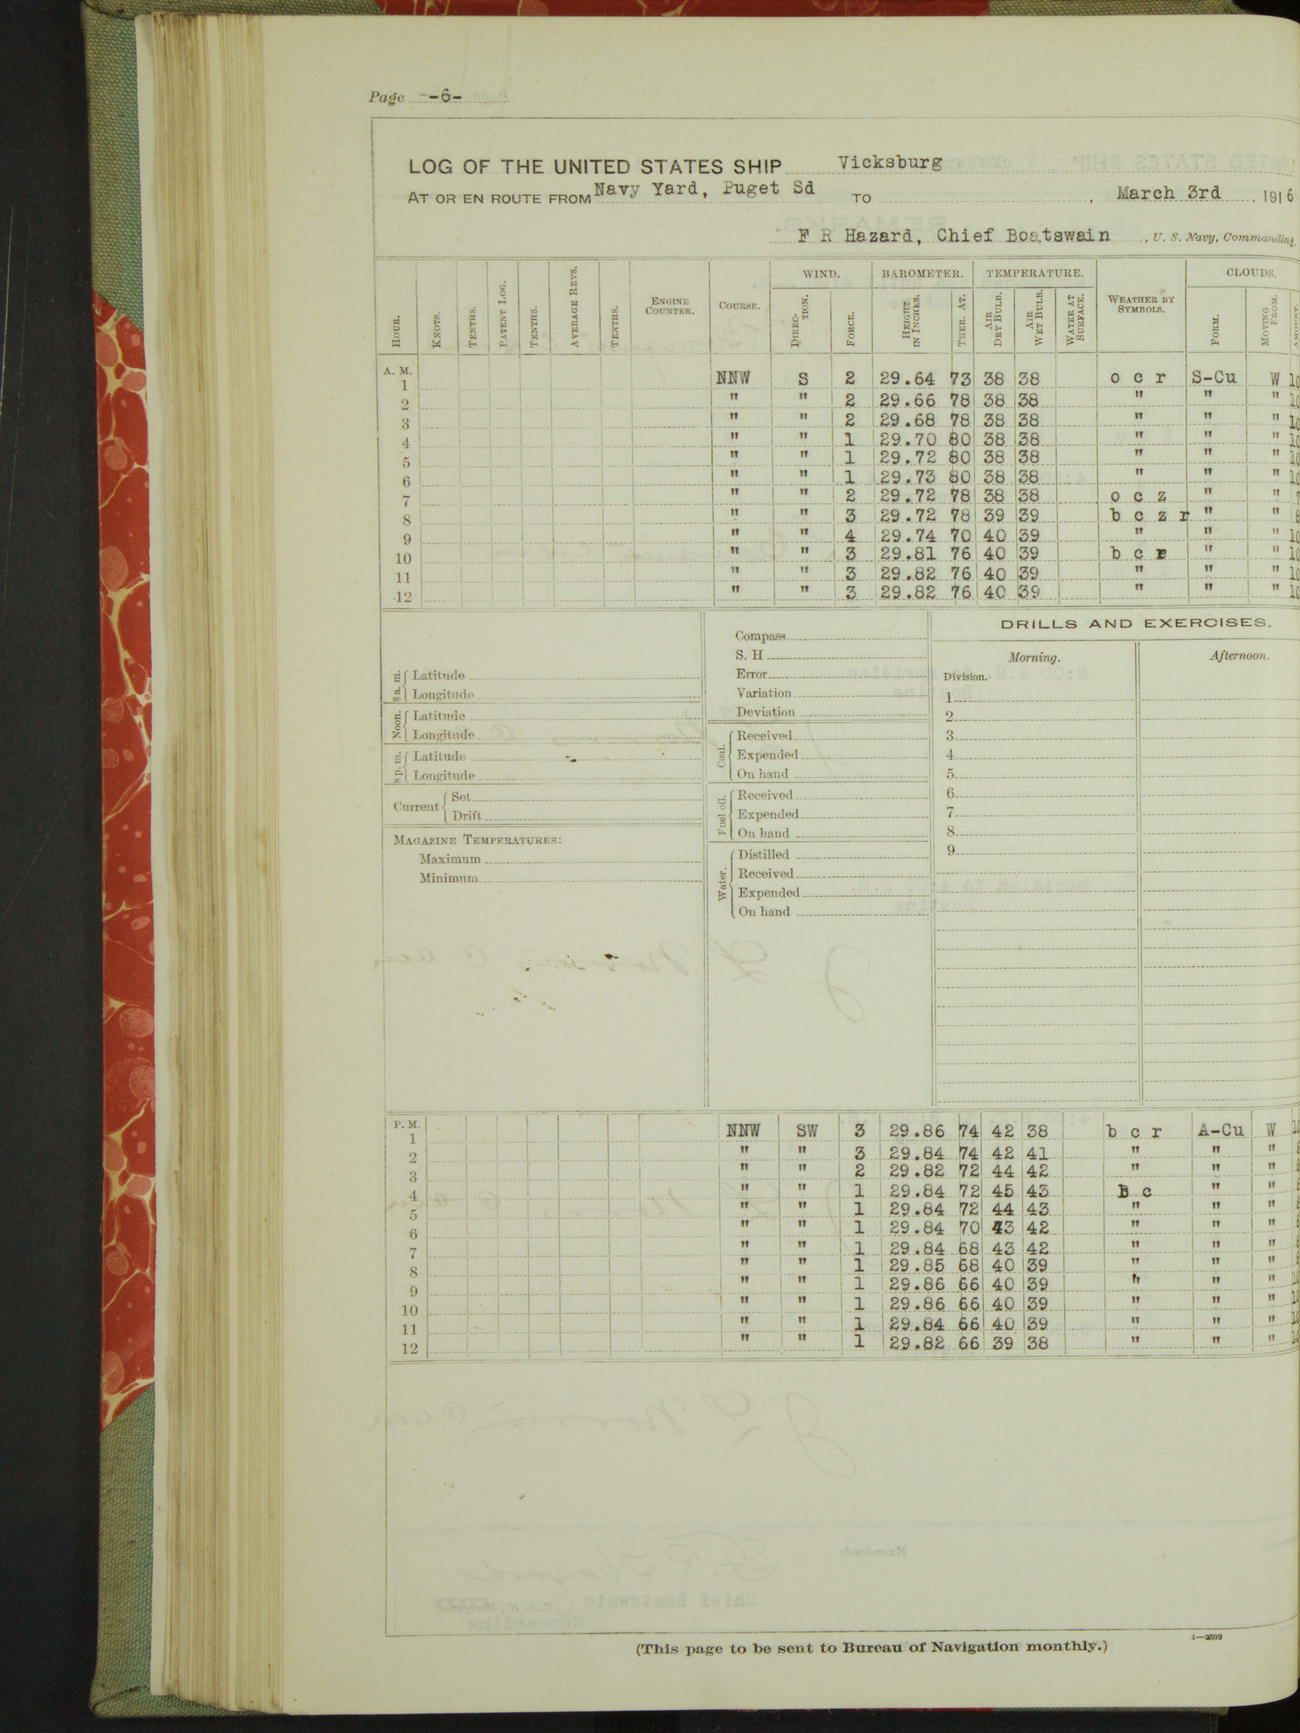 Page --6-
LOG OF THE UNITED STATES SHIP Vicksburg
AT OR EN ROUTE FROM Navy Yard, Puget Sd TO , March 3rd , 1916
F R Hazard, Chief Boatswain , U. S. Navy, Commanding.
HOUR. KNOTS. TENTHS. PATENT LOG. TENTHS. AVERAGE REVS. TENTHS. ENGINE COUNTER. COURSE. WIND. DIRECTION. FORCE. BAROMETER. HEIGHT IN INCHES. THER. AT. TEMPERATURE. AIR DRY BULB. AIR WET BULB. WATER AT SURFACE. WEATHER BY SYMBOLS. CLOUDS. FORM. MOVING FROM. AMOUNT.
A. M.
1 NNW S 2 29.64 73 38 38 o c r S-Cu W 10
2 " " 2 29.66 78 38 38 " " " 10
3 " " 2 29.68 78 38 38 " " " 10
4 " " 1 29.70 80 38 38 " " " 10
5 " " 1 29.72 80 38 38 " " " 10
6 " " 1 29.73 80 38 38 " " " 10
7 " " 2 29.72 78 38 38 o c z " "
8 " " 3 29.72 78 39 39 b c z r " "
9 " " 4 29.74 70 40 39 " " " 10
10 " " 3 29.81 76 40 39 b c r " " 10
11 " " 3 29.82 76 40 39 " " " 10
12 " " 3 29.82 76 40 39 " " " 10
8 a. m. Latitude
Longitude
Noon. Latitude
Longitude
8 p. m. Latitude
Longitude
Current Set
Drift
MAGAZINE TEMPERATURES:
Maximum
Minimum
Compass
S. H
Error
Variation
Deviation
Coal. Received
Expended
On hand
Fuel oil. Received
Expended
On hand
Water. Distilled
Received
Expended
On hand
DRILLS AND EXERCISES.
Morning. Afternoon.
Division.
1
2
3
4
5
6
7
8
9
P. M.
1 NNW SW 3 29.86 74 42 38 b c r A-Cu W
2 " " 3 29.84 74 42 41 " " "
3 " " 2 29.82 72 44 42 " " "
4 " " 1 29.84 72 45 43 b c " "
5 " " 1 29.84 72 44 43 " " "
6 " " 1 29.84 70 43 42 " " "
7 " " 1 29.84 68 43 42 " " "
8 " " 1 29.85 68 40 39 " " "
9 " " 1 29.86 66 40 39 " " "
10 " " 1 29.86 66 40 39 " " "
11 " " 1 29.84 66 40 39 " " "
12 " " 1 29.82 66 39 38 " " "
(This page to be sent to Bureau of Navigation monthly.)
4—2599